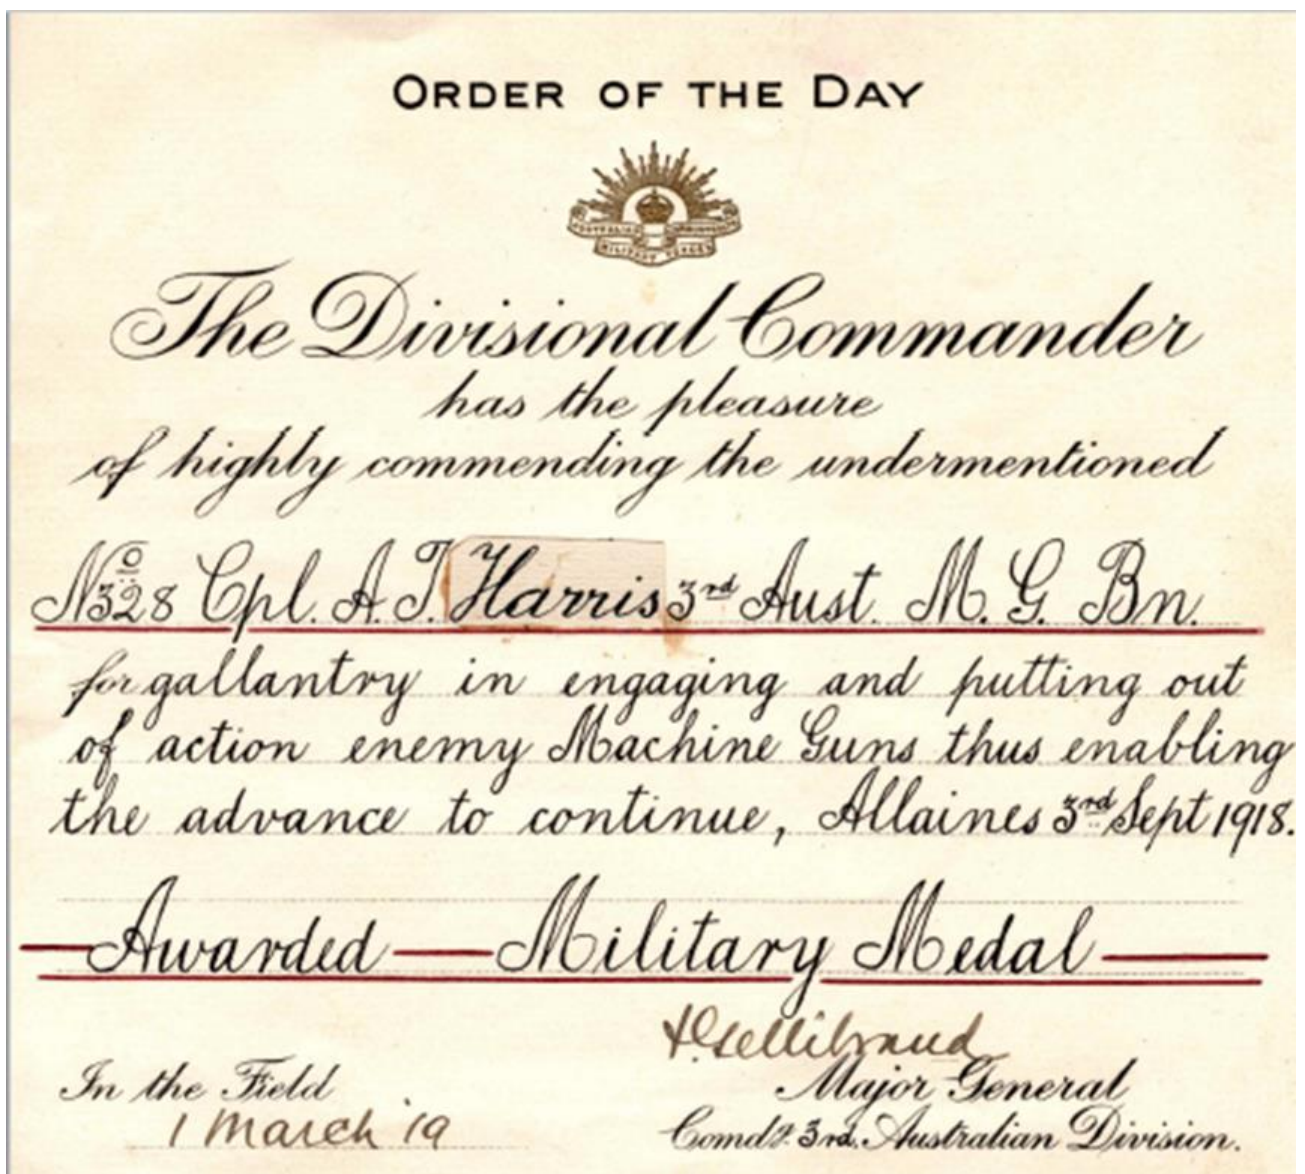 ORDER OF THE DAY
AUSTRALIAN COMMONWEALTH
MILITARY FORCES
The Divisional Commander
has the pleasure
of highly commending the undermentioned
Nº 328 Cpl. A. T. Harris 3rd Aust. M. G. Bn.
for gallantry in engaging and putting out
of action enemy Machine Guns thus enabling
the advance to continue, Allaines 3rd Sept 1918.
Awarded — Military Medal
J Gellibrand
In the Field
Major General
1 March '19
Comdg. 3rd. Australian Division.